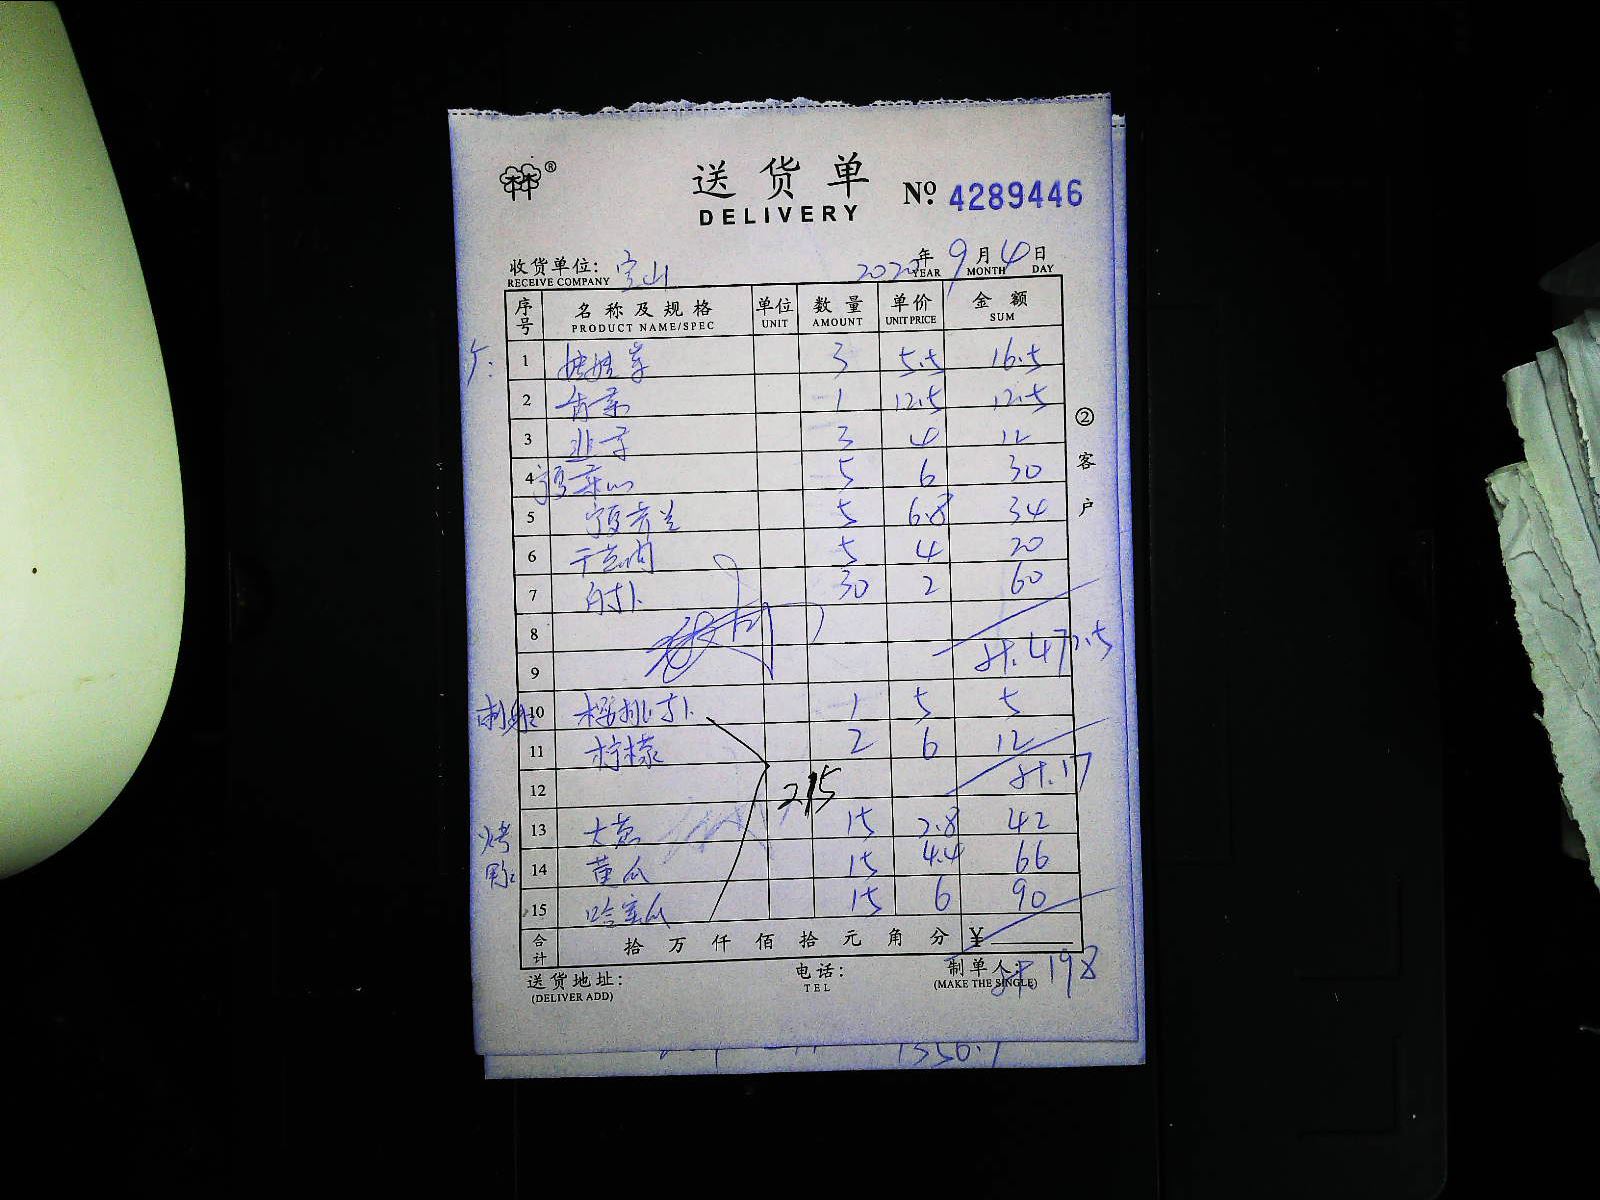 林®
送货单
DELIVERY
Nº 4289446
收货单位: 宝山 2020年9月4日
RECEIVE COMPANY YEAR MONTH DAY
序号 名称及规格 单位 数量 单价 金额
PRODUCT NAME/SPEC UNIT AMOUNT UNIT PRICE SUM
1 娃娃菜 3 5.5 16.5
2 香菜 1 12.5 12.5
3 韭子 3 4 12
4 5 6 30
5 5 6.8 34
6 5 4 20
7 30 2 60
8
计.472.5
9
10 樱桃 1 5 5
11 柠檬 2 6 12
计.17
12 215
烤鸭
13 大葱 15 2.8 42
14 黄瓜 15 4.4 66
15 哈蜜瓜 15 6 90
合计 拾万仟佰拾元角分 ¥
计.198
送货地址: 电话: 制单人:
(DELIVER ADD) TEL (MAKE THE SINGLE)
②客户